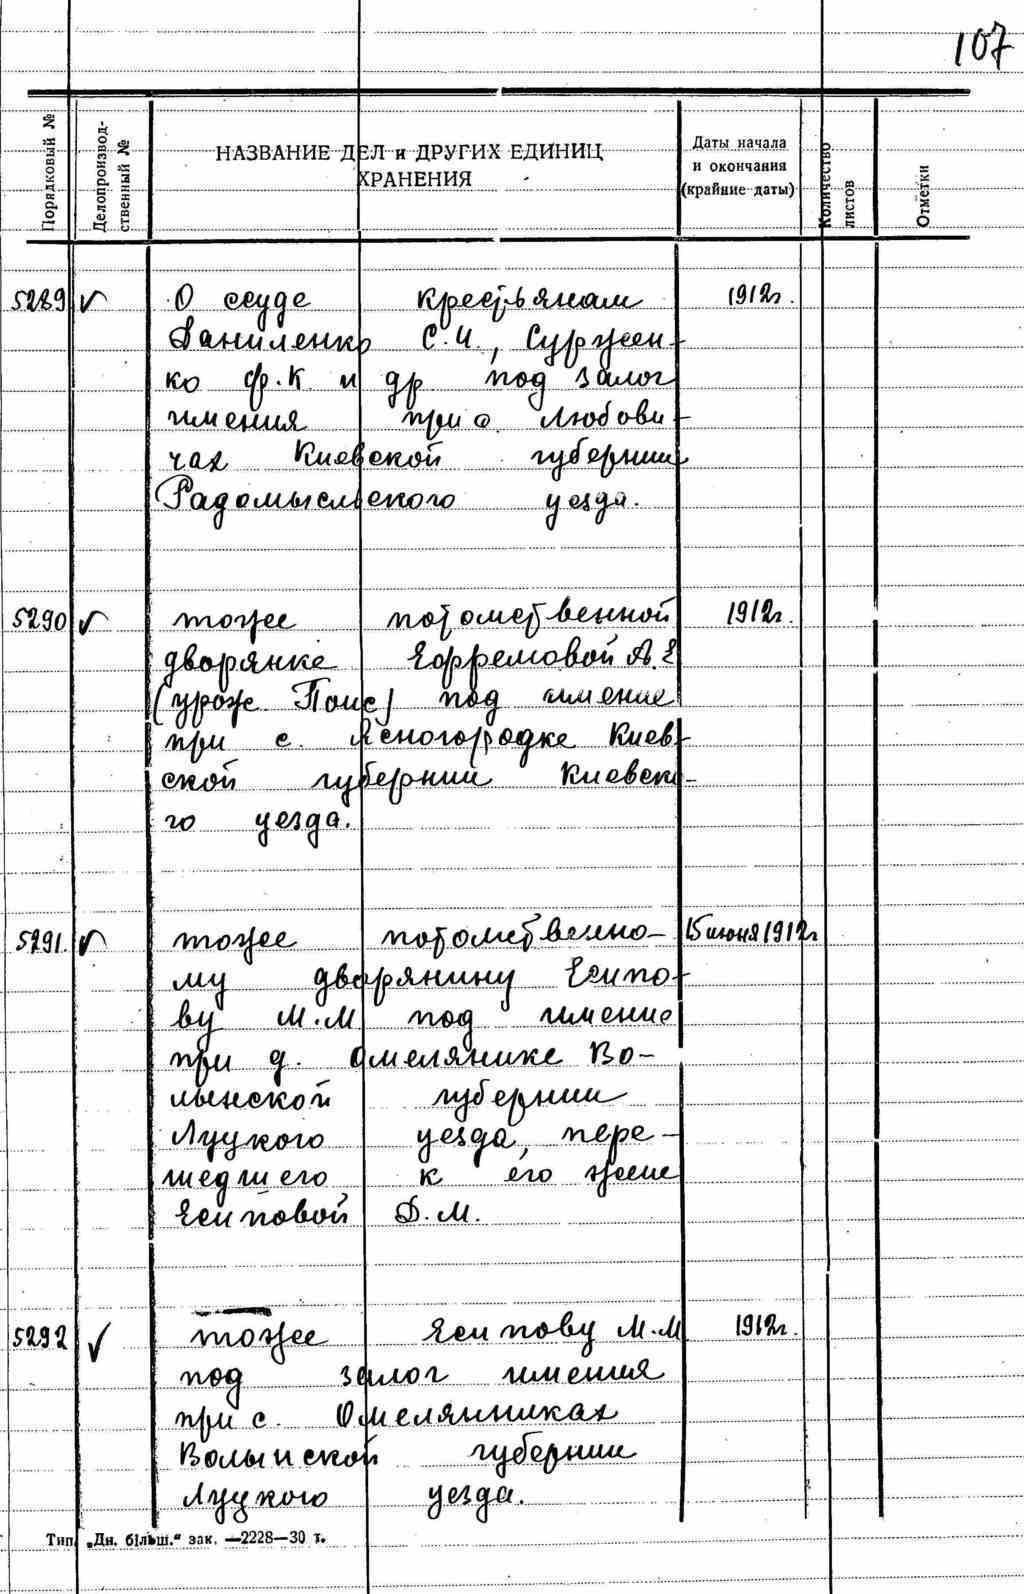 107
Порядковый №
Делопроизвод-
ственный №
НАЗВАНИЕ ДЕЛ и ДРУГИХ ЕДИНИЦ
ХРАНЕНИЯ
Даты начала
и окончания
(крайние даты)
Количество
листов
Отметки
5289 О ссуде крестьянам 1912г.
Даниленко С.И., Суржен-
ко Ф.К и др под залог
имения при с. Любови-
чах Киевской губернии
Радомысльского уезда.
5290 тоже потомственной 1912г.
дворянке Ефремовой А.Е
(урож. Понс) под имение
при с. Ясногородке Киев-
ской губернии Киевско-
го уезда.
5291. тоже потомственно- 15 июня 1912г
му дворянину Есипо-
ву М.М под имение
при д. Омелянике Во-
лынской губернии
Луцкого уезда, пере-
шедшего к его жене
Есиповой Д.М.
5292 тоже Есипову М.М 1912г.
под залог имения
при с. Омелянниках
Волынской губернии
Луцкого уезда.
Тип. „Дн. більш.“ зак. —2228—30 т.